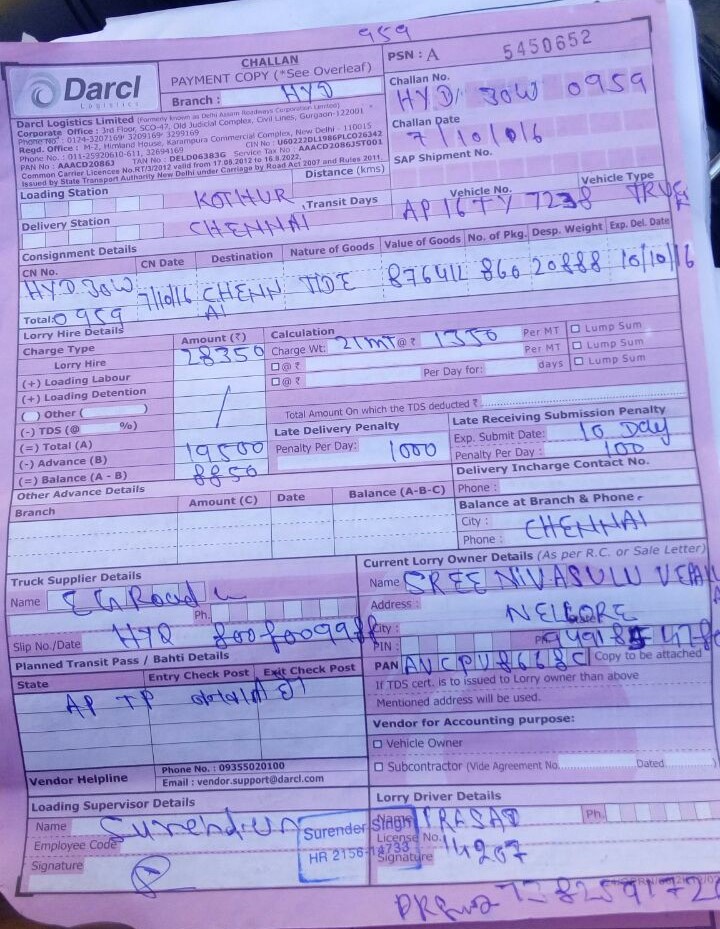 959
Darcl
Logistics
CHALLAN
PAYMENT COPY (*See Overleaf)
Branch : HYD
PSN : A 5450652
Darcl Logistics Limited (Formerly known as Delhi Assam Roadways Corporation Limited)
Corporate Office : 3rd Floor, SCO-47, Old Judicial Complex, Civil Lines, Gurgaon-122001
Phone No.: 0124-3207169/ 3209169/ 3299169
Regd. Office : M-2, Himland House, Karampura Commercial Complex, New Delhi - 110015
Phone No. : 011-25920610-611, 32694169 CIN No : U60222DL1986PLC026342
PAN No : AAACD2086J TAN No : DELD06383G Service Tax No : AAACD2086JST001
Common Carrier Licences No.RT/3/2012 valid from 17.08.2012 to 16.8.2022,
Issued by State Transport Authority New Delhi under Carriage by Road Act 2007 and Rules 2011.
Challan No.
HYD 30W 0959
Challan Date
7/10/016
SAP Shipment No.
Loading Station KOTHUR
Distance (kms)
Delivery Station CHENNAI
Transit Days
Vehicle No. AP 16 TY 7238
Vehicle Type
Consignment Details
CN No. CN Date Destination Nature of Goods Value of Goods No. of Pkg. Desp. Weight Exp. Del. Date
HYD 30W 7/10/16 CHENN TIDE 860 20888 10/10/16
Total: 0959 AI
Lorry Hire Details
Charge Type Amount (₹)
Lorry Hire 28350
(+) Loading Labour
(+) Loading Detention
( ) Other ( )
(-) TDS (@ %)
(=) Total (A)
(-) Advance (B) 19500
(=) Balance (A - B) 8850
Calculation
Charge Wt: 21MT @ ₹ 1350 Per MT Lump Sum
@ ₹ Per MT Lump Sum
@ ₹ Per Day for: days Lump Sum
Total Amount On which the TDS deducted ₹
Late Delivery Penalty
Penalty Per Day: 1000
Late Receiving Submission Penalty
Exp. Submit Date: 10 Day
Penalty Per Day : 100
Delivery Incharge Contact No.
Phone :
Other Advance Details
Branch Amount (C) Date Balance (A-B-C)
Balance at Branch & Phone
City : CHENNAI
Phone :
Truck Supplier Details
Name
Ph.
Slip No./Date
Current Lorry Owner Details (As per R.C. or Sale Letter)
Name SREE NIVASULU
Address :
City : NELLORE
PIN :
PAN ANCPV8668C Copy to be attached
If TDS cert. is to issued to Lorry owner than above
Mentioned address will be used.
Planned Transit Pass / Bahti Details
State Entry Check Post Exit Check Post
AP TP
Vendor for Accounting purpose:
Vehicle Owner
Subcontractor (Vide Agreement No. Dated )
Vendor Helpline
Phone No. : 09355020100
Email : vendor.support@darcl.com
Loading Supervisor Details
Name
Employee Code
Signature
Surender Singh
HR 2156-14733
Lorry Driver Details
Name PRASAD Ph.
License No. 14207
Signature